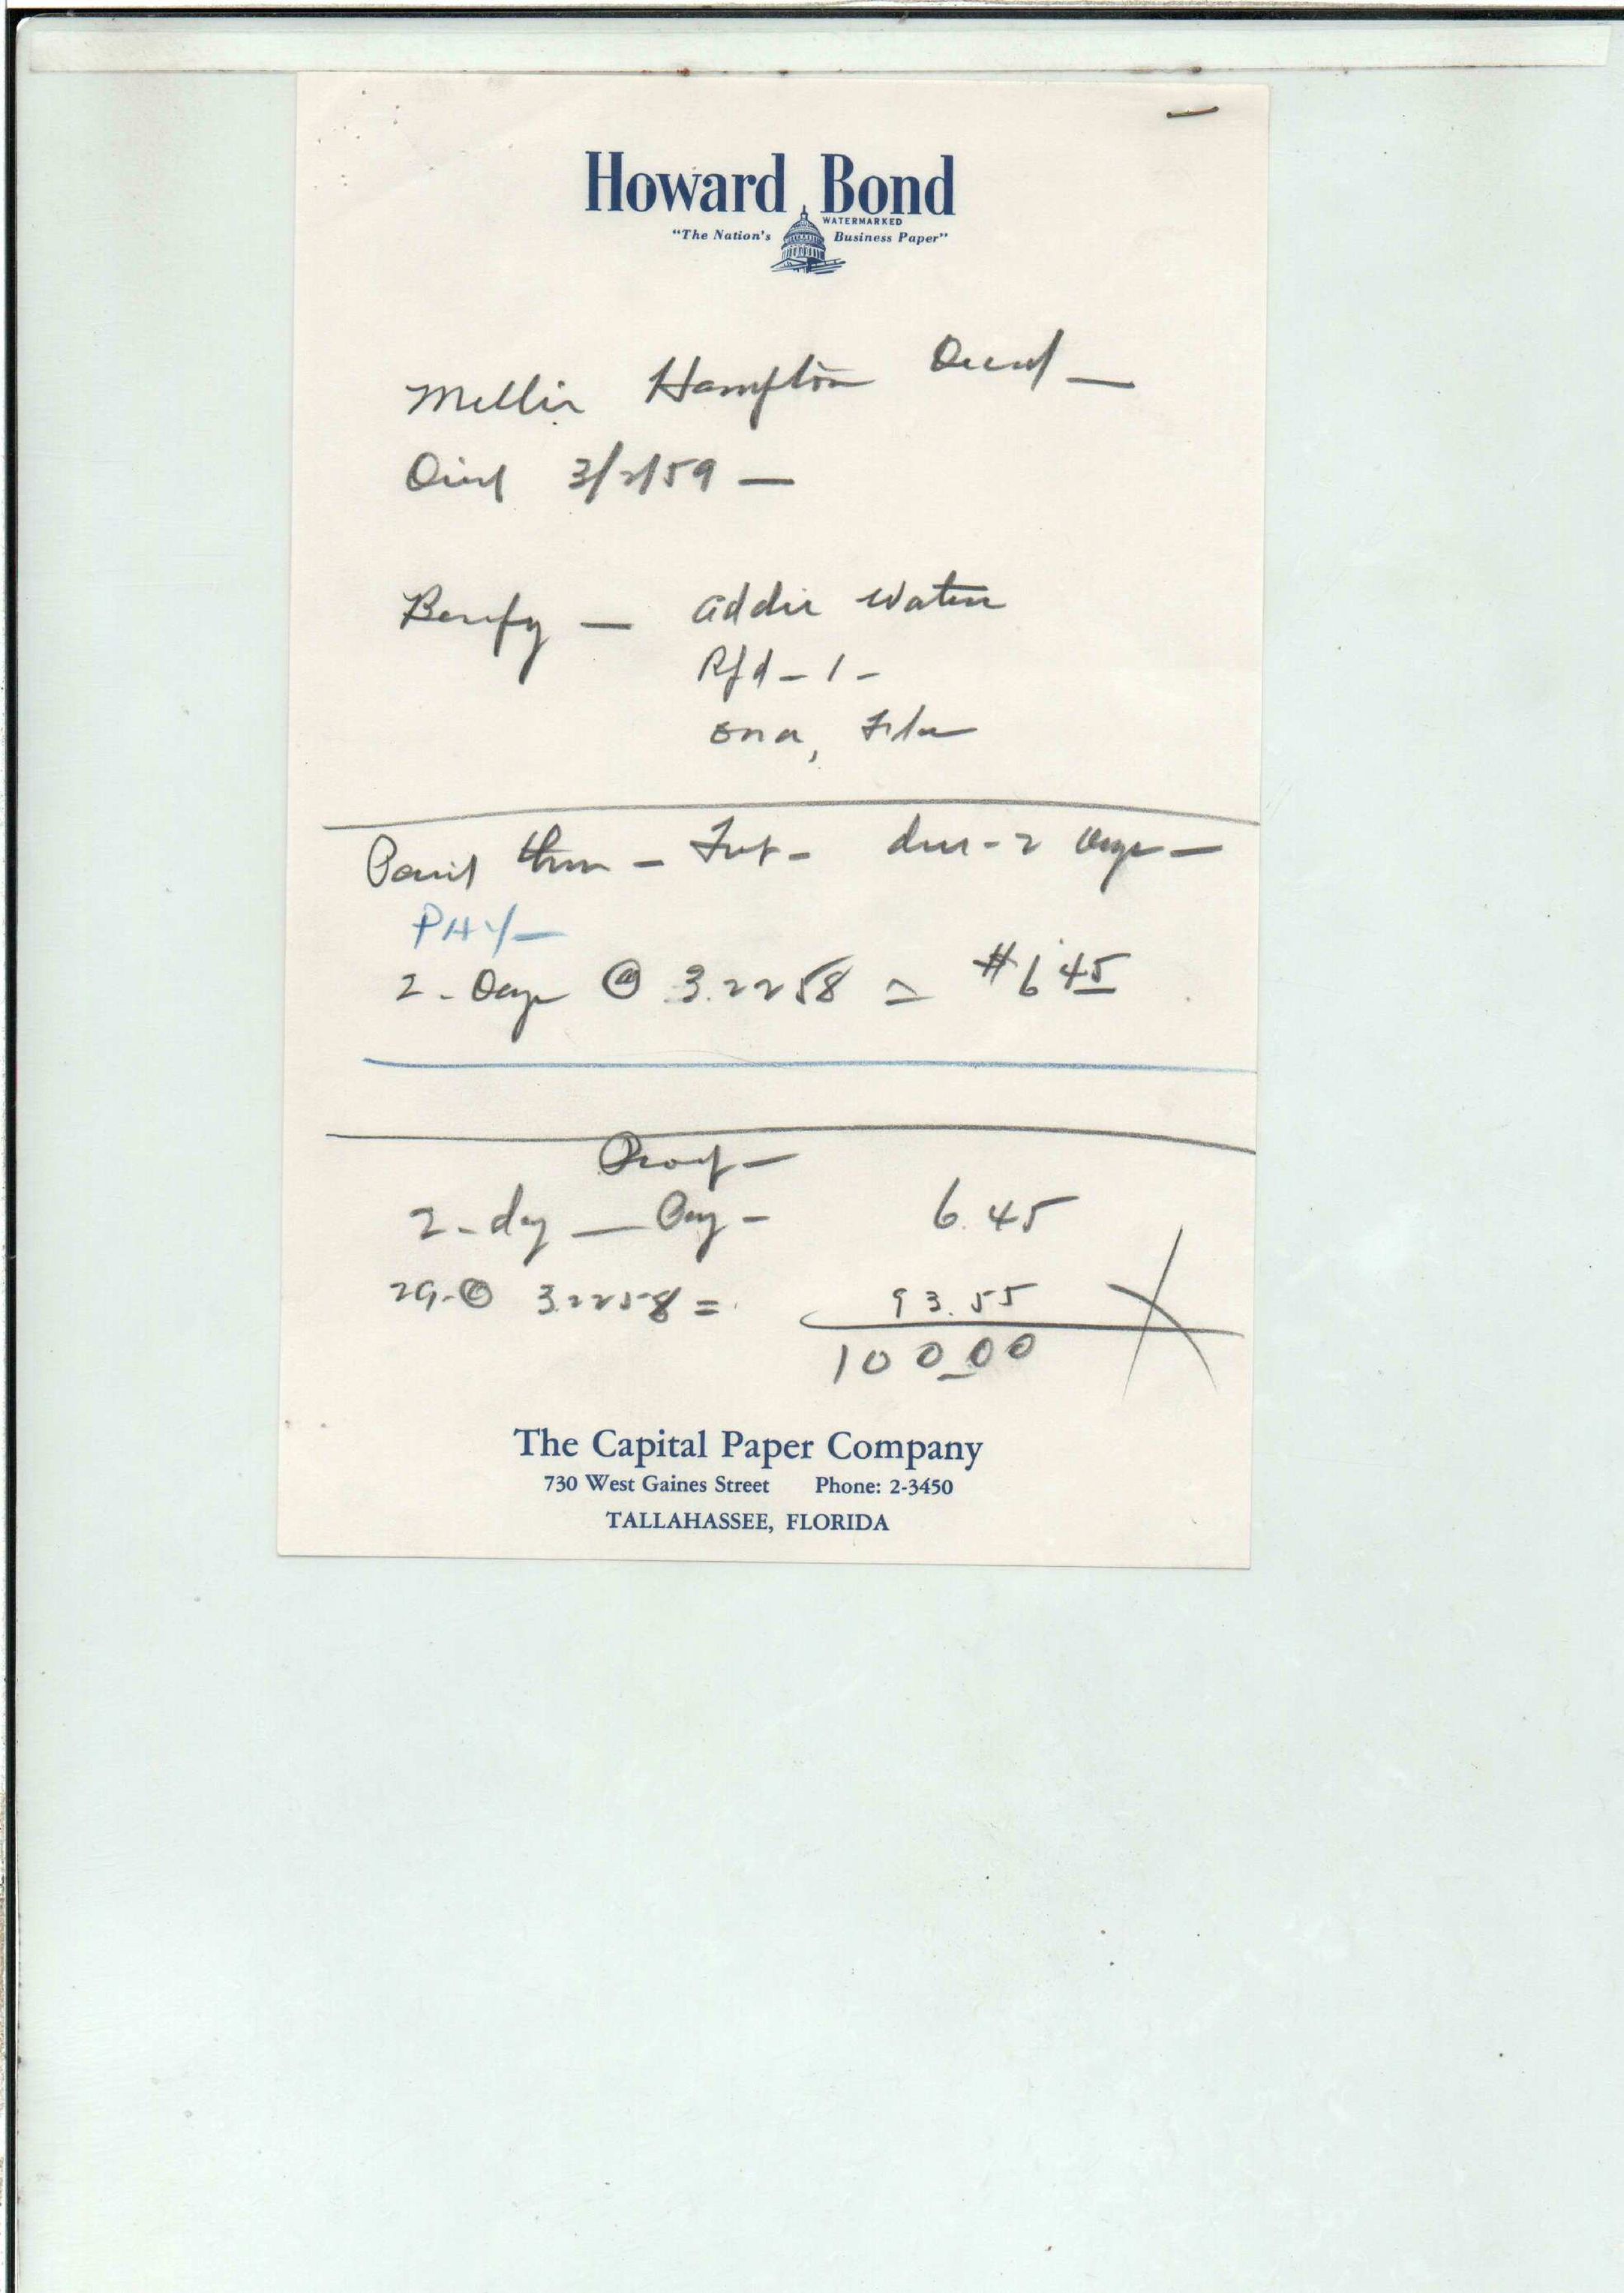 Howard Bond
WATERMARKED
"The Nation's Business Paper"
Mellie Hampton Decd —
Died 3/2/59 —
Benefy — Addie Waters
Rfd - 1 -
Ona, Fla
Paid thru - Feb - due - 2 Days —
PAY —
2 - Days @ 3.2258 = $6.45
Proof —
2 - dy — Pay - 6.45
29 - @ 3.2258 = 93.55
100.00
The Capital Paper Company
730 West Gaines Street Phone: 2-3450
TALLAHASSEE, FLORIDA